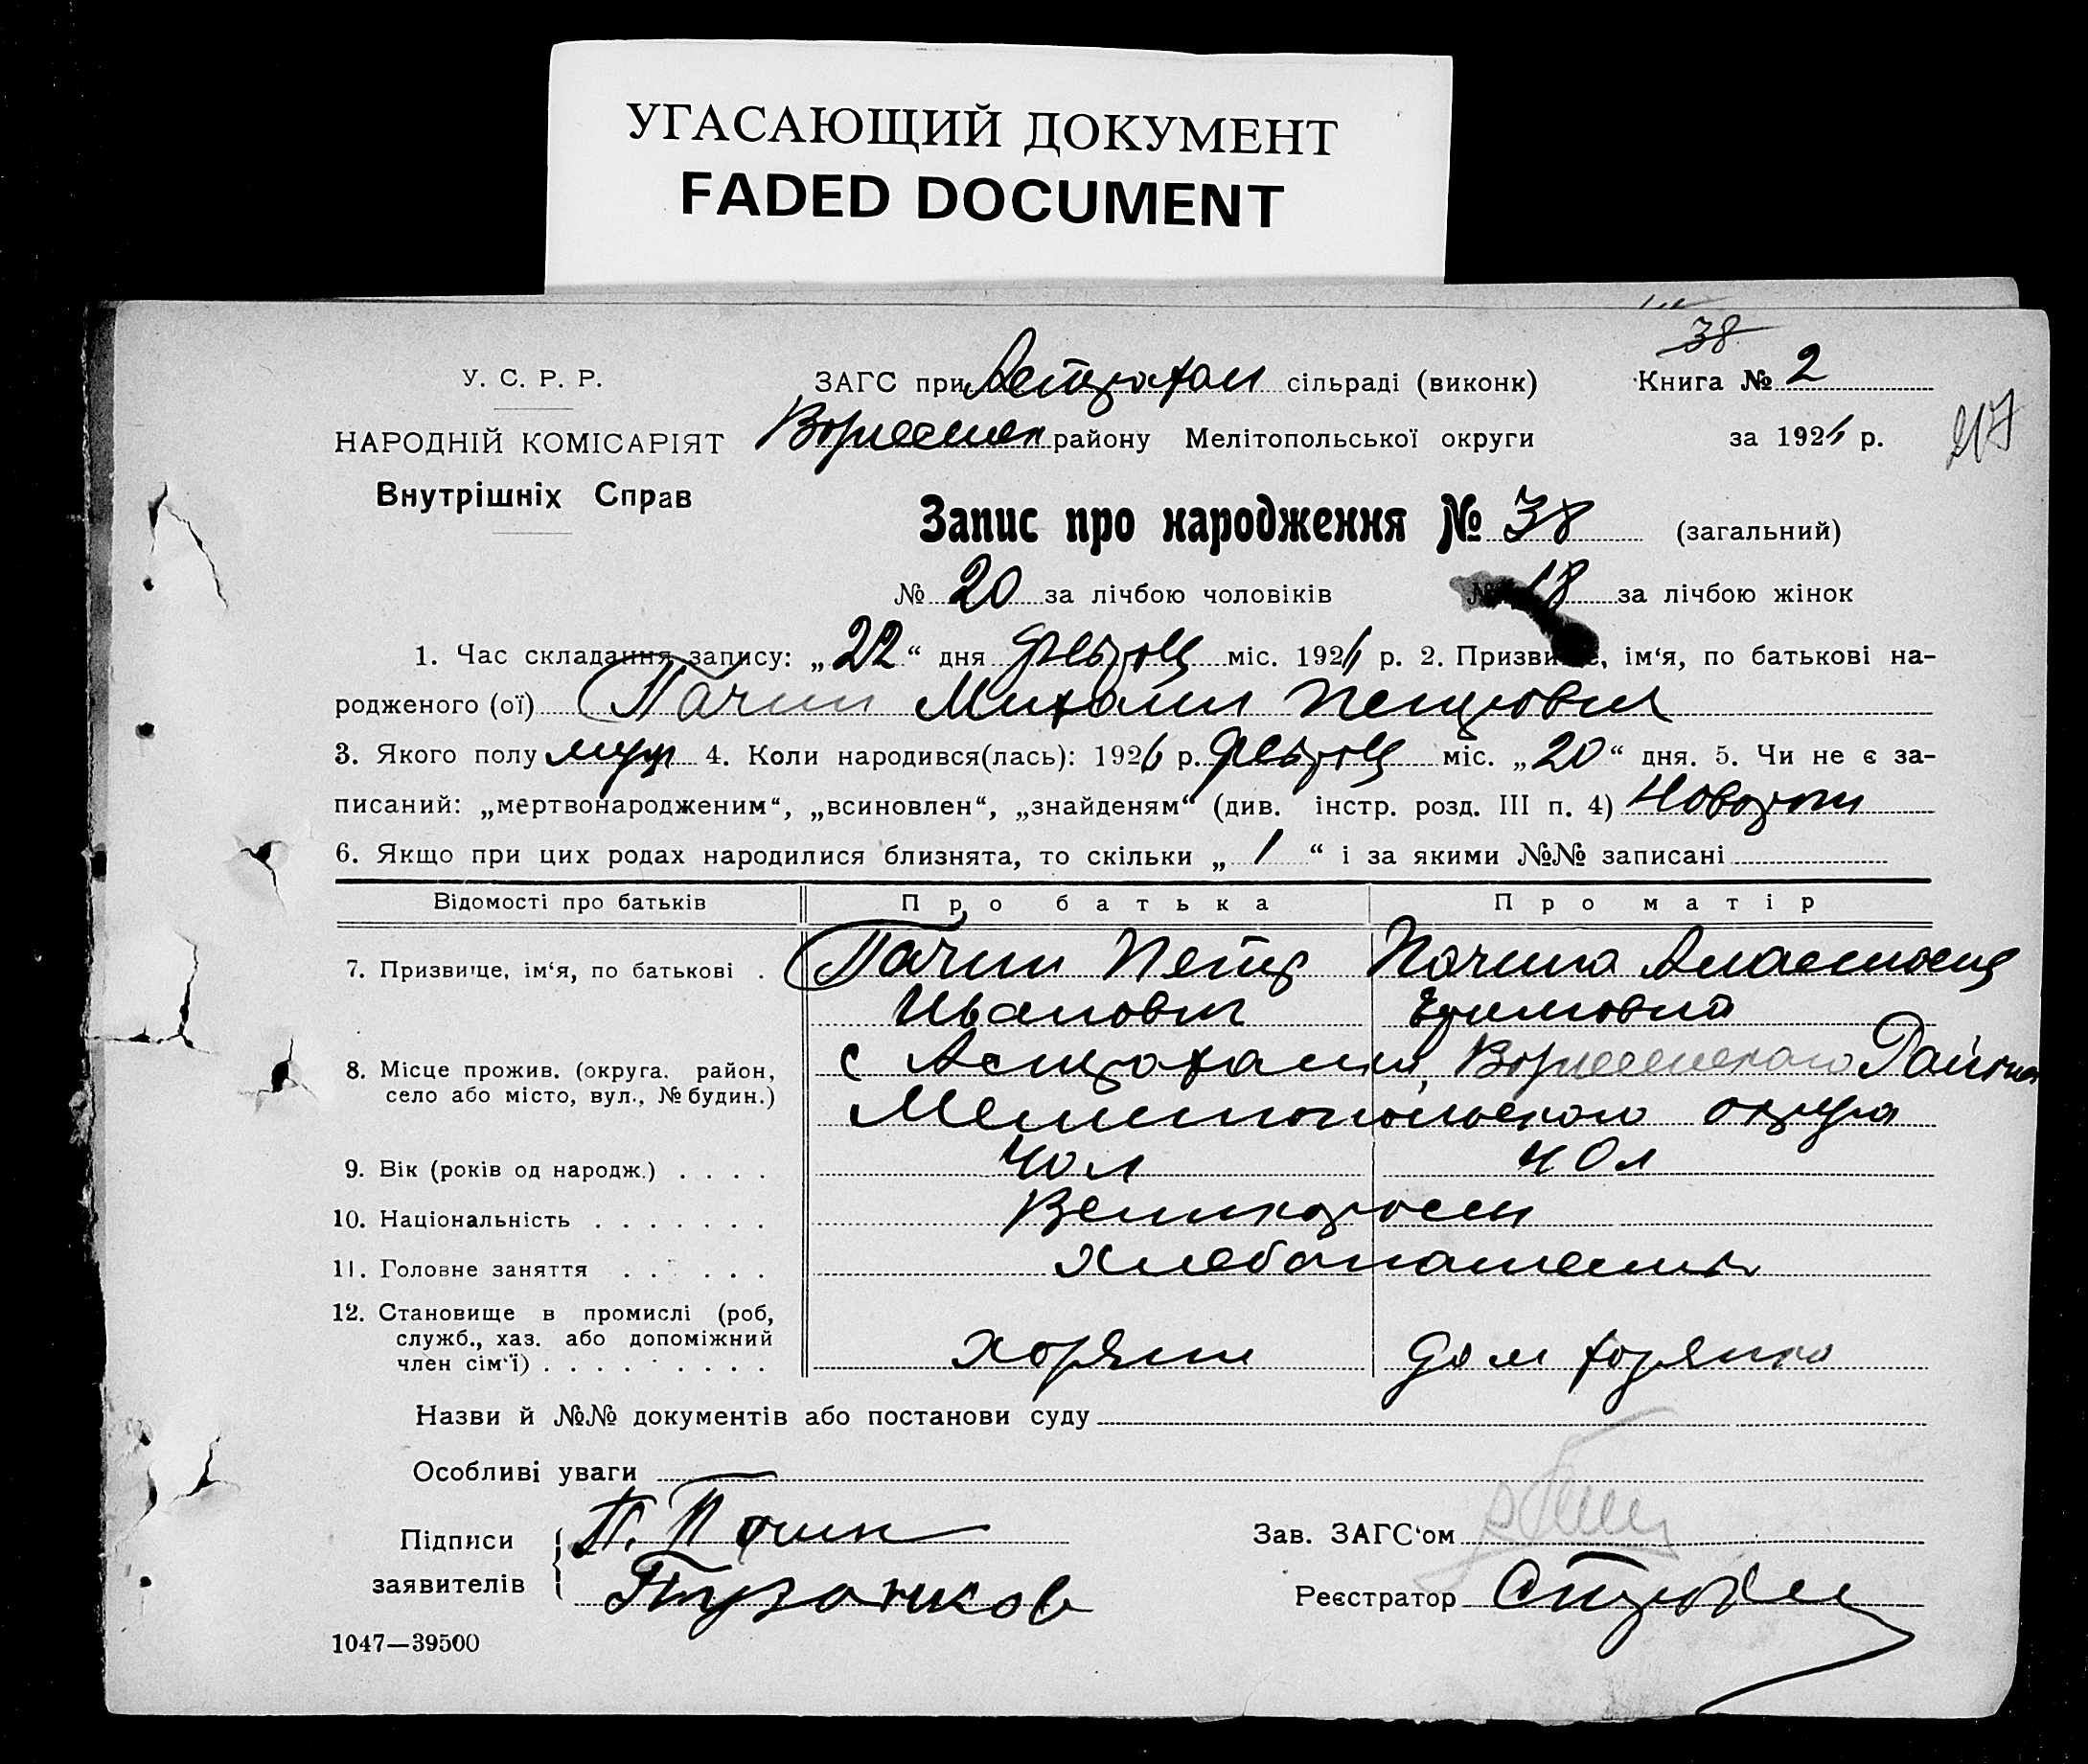 УГАСАЮЩИЙ ДОКУМЕНТ
FADED DOCUMENT
38
У. С. Р. Р.
ЗАГС при Астрахан сільраді (виконк)
Книга № 2
НАРОДНІЙ КОМІСАРІЯТ
району Мелітопольської округи
за 1926 р.
217
Внутрішніх Справ
Запис про народження № 38 (загальний)
№ 20 за лічбою чоловіків № 18 за лічбою жінок
1. Час складання запису: „22“ дня февраля міс. 1926 р. 2. Призвище, ім‘я, по батькові на-
родженого (ої) Пачин Михаил Петрович
3. Якого полу муж 4. Коли народився(лась): 1926 р. февраля міс. „20“ дня. 5. Чи не є за-
писаний: „мертвонародженим“, „всиновлен“, „знайденям“ (див. інстр. розд. III п. 4)
6. Якщо при цих родах народилися близнята, то скільки „ 1 “ і за якими №№ записані
Відомості про батьків
Про батька
Про матір
7. Призвище, ім‘я, по батькові .
Пачин Петр
Пачина Анастасия
Иванович
Ефимовна
8. Місце прожив. (округа. район,
село або місто, вул., № будин.)
с Астрахани, Района
Мелитопольского округа
9. Вік (років од народж.) . . . .
40 л
40 л
10. Національність . . . . . . .
Великороссы
11. Головне заняття . . . . . .
Хлебопашест
12. Становище в промислі (роб,
служб., хаз. або допоміжний
член сім‘ї) . . . . . . . . .
Хозяин
дом хозяйка
Назви й №№ документів або постанови суду
Особливі уваги
Підписи
заявителів
П. Пачин
Зав. ЗАГС‘ом
Реєстратор
1047—39500